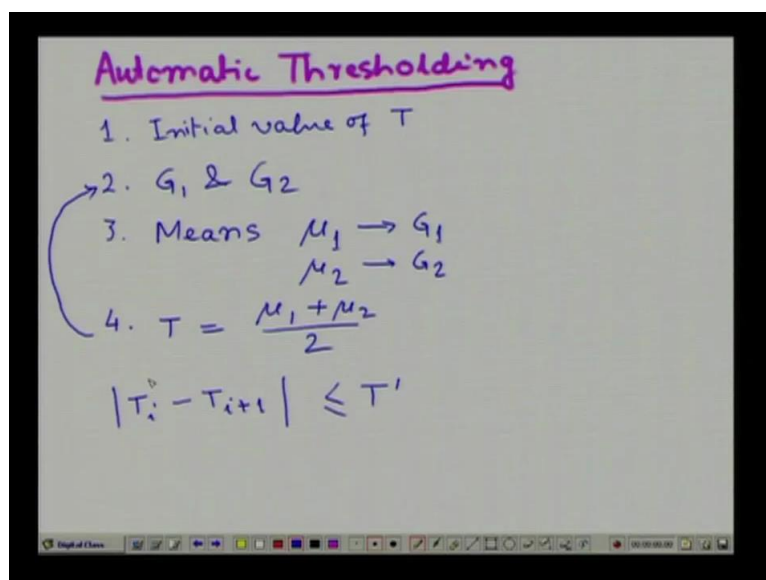 Automatic Thresholding
1. Initial value of T
2. G₁ & G₂
3. Means μ₁ → G₁
μ₂ → G₂
4. T = (μ₁ + μ₂) / 2
|Tᵢ - Tᵢ₊₁| ≤ T'
Digital Class 00:00:00.00